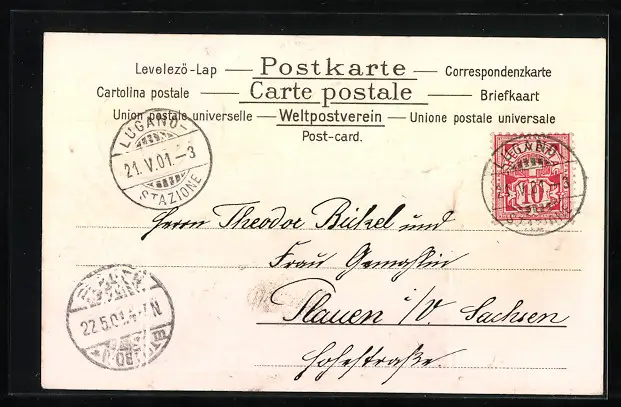 Levelező-Lap — Postkarte — Correspondenzkarte
Cartolina postale — Carte postale — Briefkaart
Union postale universelle — Weltpostverein — Unione postale universale
Post-card.
LUGANO
21.V.01.–3
STAZIONE
LUGANO
V.01.–3
10
Herrn Theodor Bickel und
Frau Gemahlin
Plauen i/V. Sachsen
Hohestraße.
22.5.01.4-7N